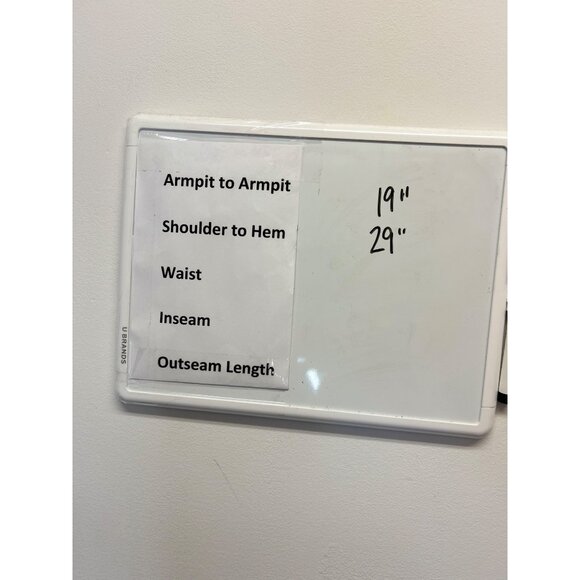 Armpit to Armpit 19"
Shoulder to Hem 29"
Waist
Inseam
Outseam Length
U BRANDS